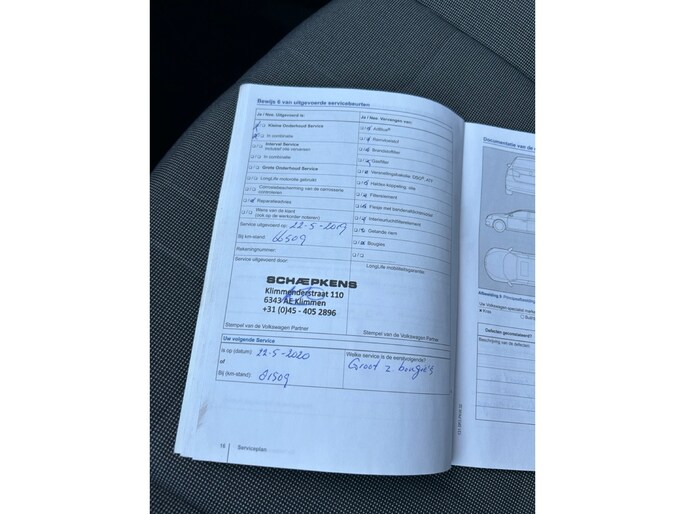 Bewijs 6 van uitgevoerde servicebeurten
Ja / Nee. Uitgevoerd is:
Kleine Onderhoud Service
In combinatie
Interval Service
inclusief olie verversen
In combinatie
Grote Onderhoud Service
LongLife motorolie gebruikt
Reparatieadvies
Wens van de klant
(ook op de werkorder noteren)
Service uitgevoerd op: 22-5-2019
Bij km-stand: 66509
Rekeningnummer:
Service uitgevoerd door:
SCHÆPKENS
Klimmenderstraat 110
6343 AE Klimmen
+31 (0)45 - 405 2896
Stempel van de Volkswagen Partner
Ja / Nee. Vervangen van:
Remvloeistof
Brandstoffilter
Oliefilter
Haldex-koppeling: olie
Filterelement
Interieurluchtfilterelement
Getande riem
Bougies
LongLife mobiliteitsgarantie
Stempel van de Volkswagen Partner
Uw volgende Service
is op (datum): 22-5-2020
of
Bij (km-stand): 81509
Welke service is de eerstvolgende?
Groot z bougie's
16
Serviceplan
Documentatie van de
Uw Volkswagen specialist
Defecten geconstateerd?
Beschrijving van de defecten: